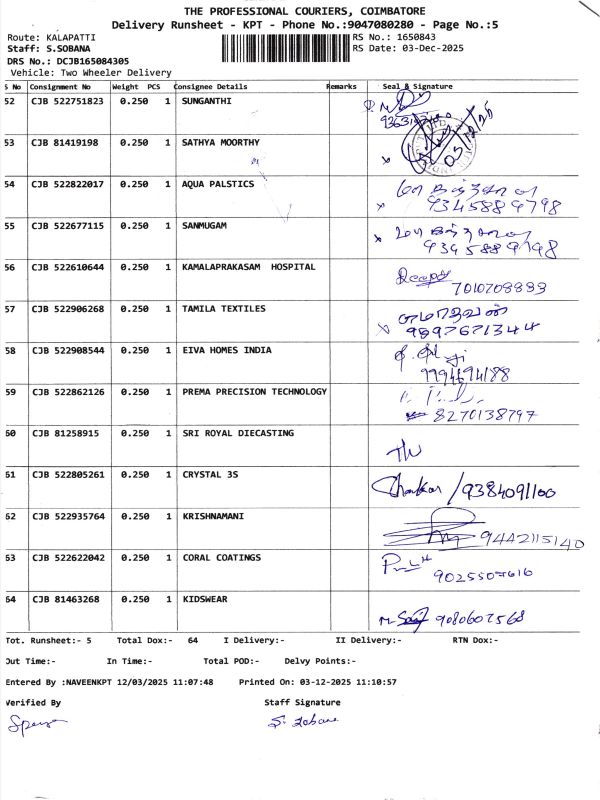 THE PROFESSIONAL COURIERS, COIMBATORE
Delivery Runsheet - KPT - Phone No.:9047080280 - Page No.:5
Route: KALAPATTI
RS No.: 1650843
Staff: S.SOBANA
RS Date: 03-Dec-2025
DRS No.: DCJB165084305
Vehicle: Two Wheeler Delivery
S No Consignment No Weight PCS Consignee Details Remarks Seal & Signature
52 CJB 522751823 0.250 1 SUNGANTHI
53 CJB 81419198 0.250 1 SATHYA MOORTHY
03/12/25
54 CJB 522822017 0.250 1 AQUA PALSTICS
9345889798
55 CJB 522677115 0.250 1 SANMUGAM
9345889798
56 CJB 522610644 0.250 1 KAMALAPRAKASAM HOSPITAL
57 CJB 522906268 0.250 1 TAMILA TEXTILES
9897671344
58 CJB 522908544 0.250 1 EIVA HOMES INDIA
9994694188
59 CJB 522862126 0.250 1 PREMA PRECISION TECHNOLOGY
8270138797
60 CJB 81258915 0.250 1 SRI ROYAL DIECASTING
61 CJB 522805261 0.250 1 CRYSTAL 3S
/9384091100
62 CJB 522935764 0.250 1 KRISHNAMANI
9442115140
63 CJB 522622042 0.250 1 CORAL COATINGS
64 CJB 81463268 0.250 1 KIDSWEAR
9080607568
Tot. Runsheet:- 5 Total Dox:- 64 I Delivery:- II Delivery:- RTN Dox:-
Out Time:- In Time:- Total POD:- Delvy Points:-
Entered By :NAVEENKPT 12/03/2025 11:07:48 Printed On: 03-12-2025 11:10:57
Verified By Staff Signature